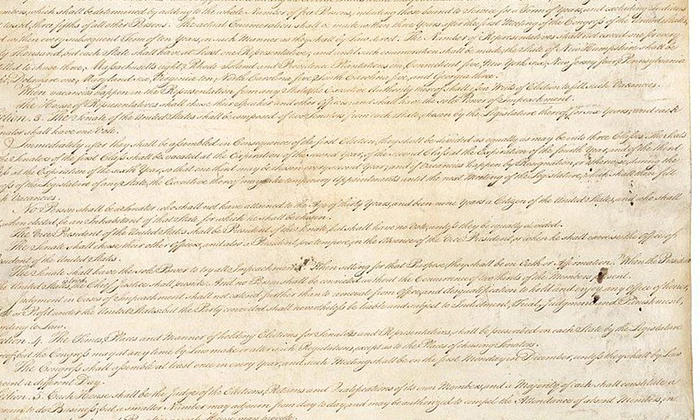 which shall be determined by adding to the whole Number of free Persons, including those bound to Service for a Term of Years, and excluding Indians
not taxed, three fifths of all other Persons. The actual Enumeration shall be made within three Years after the first Meeting of the Congress of the United States,
and within every subsequent Term of ten Years, in such Manner as they shall by Law direct. The Number of Representatives shall not exceed one for every
thirty Thousand, but each State shall have at Least one Representative; and until such enumeration shall be made, the State of New Hampshire shall be
entitled to chuse three, Massachusetts eight, Rhode-Island and Providence Plantations one, Connecticut five, New-York six, New Jersey four, Pennsylvania
eight, Delaware one, Maryland six, Virginia ten, North Carolina five, South Carolina five, and Georgia three.
When vacancies happen in the Representation from any State, the Executive Authority thereof shall issue Writs of Election to fill such Vacancies.
The House of Representatives shall chuse their Speaker and other Officers; and shall have the sole Power of Impeachment.
Section. 3. The Senate of the United States shall be composed of two Senators from each State, chosen by the Legislature thereof, for six Years; and each
Senator shall have one Vote.
Immediately after they shall be assembled in Consequence of the first Election, they shall be divided as equally as may be into three Classes. The Seats
of the Senators of the first Class shall be vacated at the Expiration of the second Year, of the second Class at the Expiration of the fourth Year, and of the third
Class at the Expiration of the sixth Year, so that one third may be chosen every second Year; and if Vacancies happen by Resignation, or otherwise, during the
Recess of the Legislature of any State, the Executive thereof may make temporary Appointments until the next Meeting of the Legislature, which shall then fill
such Vacancies.
No Person shall be a Senator who shall not have attained to the Age of thirty Years, and been nine Years a Citizen of the United States, and who shall
not, when elected, be an Inhabitant of that State for which he shall be chosen.
The Vice President of the United States shall be President of the Senate, but shall have no Vote, unless they be equally divided.
The Senate shall chuse their other Officers, and also a President pro tempore, in the Absence of the Vice President, or when he shall exercise the Office of
President of the United States.
The Senate shall have the sole Power to try all Impeachments. When sitting for that Purpose, they shall be on Oath or Affirmation. When the President
of the United States is tried, the Chief Justice shall preside: And no Person shall be convicted without the Concurrence of two thirds of the Members present.
Judgment in Cases of Impeachment shall not extend further than to removal from Office, and disqualification to hold and enjoy any Office of honor,
Trust or Profit under the United States: but the Party convicted shall nevertheless be liable and subject to Indictment, Trial, Judgment and Punishment,
according to Law.
Section. 4. The Times, Places and Manner of holding Elections for Senators and Representatives, shall be prescribed in each State by the Legislature
thereof; but the Congress may at any time by Law make or alter such Regulations, except as to the Places of chusing Senators.
The Congress shall assemble at least once in every Year, and such Meeting shall be on the first Monday in December, unless they shall by Law
appoint a different Day.
Section. 5. Each House shall be the Judge of the Elections, Returns and Qualifications of its own Members, and a Majority of each shall constitute a
Quorum to do Business; but a smaller Number may adjourn from day to day, and may be authorized to compel the Attendance of absent Members, in